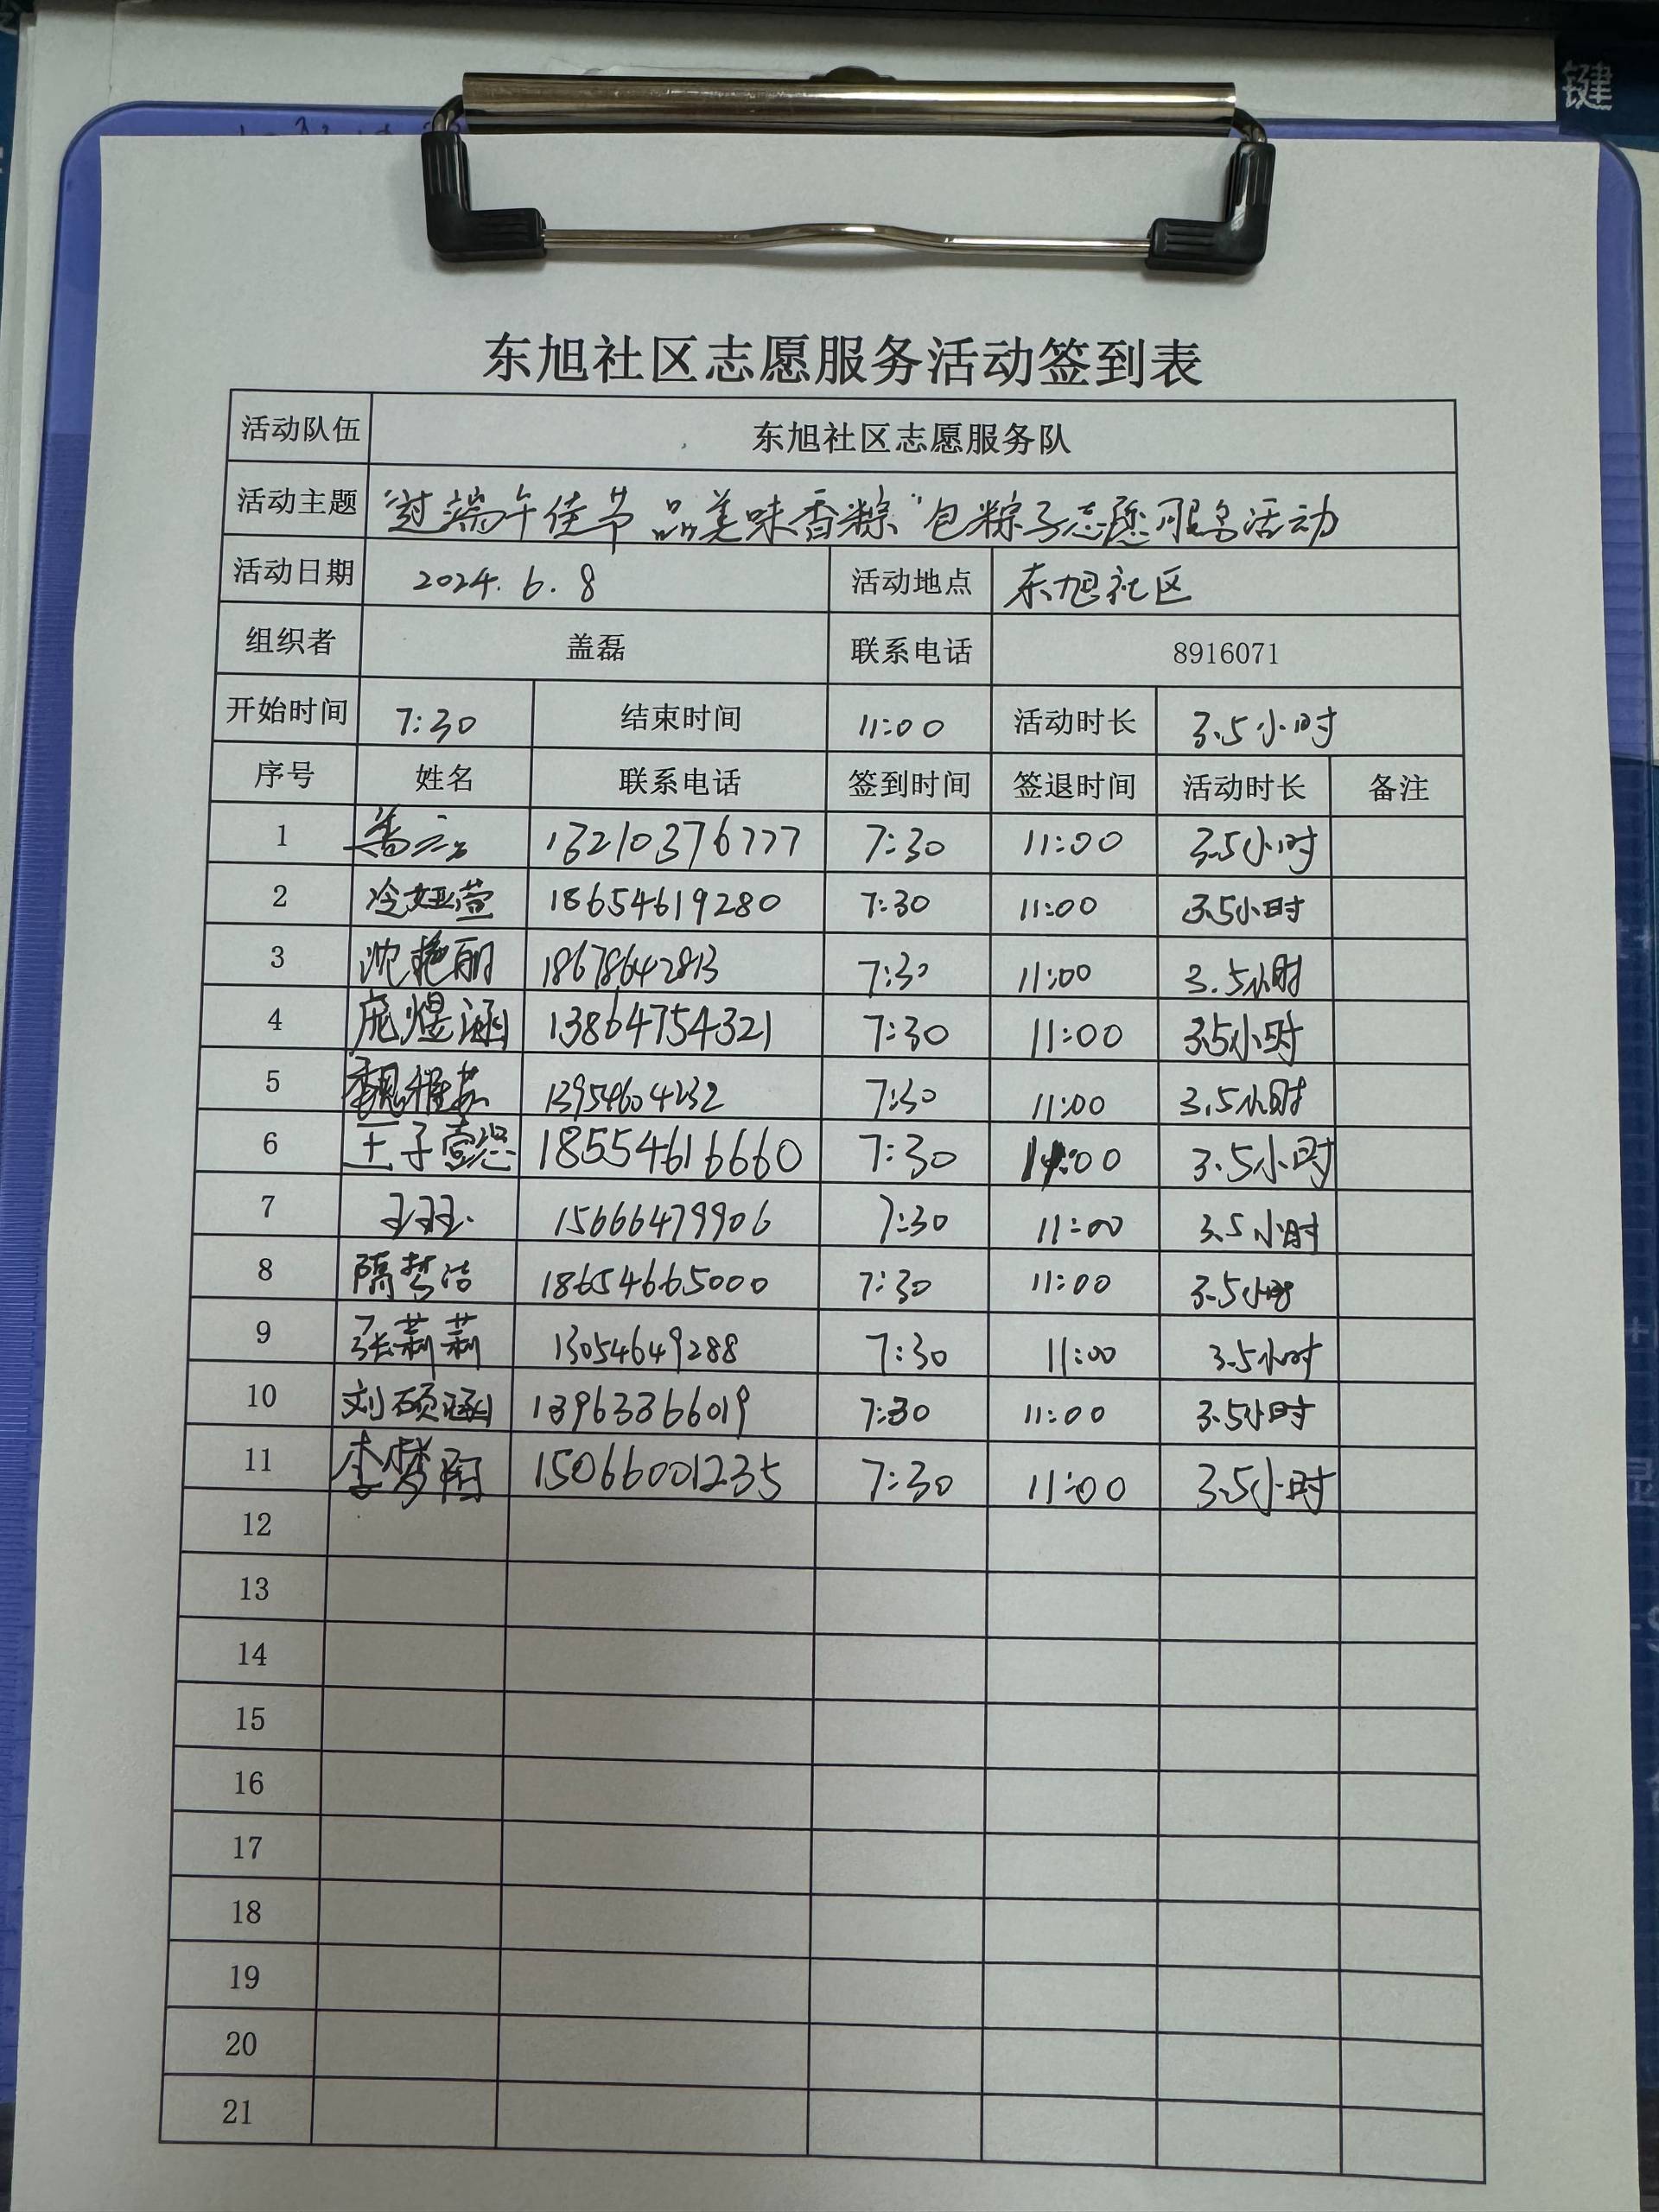 键
东旭社区志愿服务活动签到表
活动队伍 东旭社区志愿服务队
活动主题 "过端午佳节 品美味香粽"包粽子志愿服务活动
活动日期 2024.6.8 活动地点 东旭社区
组织者 盖磊 联系电话 8916071
开始时间 7:30 结束时间 11:00 活动时长 3.5小时
序号 姓名 联系电话 签到时间 签退时间 活动时长 备注
1 13210376777 7:30 11:00 3.5小时
2 冷娅萱 18654619280 7:30 11:00 3.5小时
3 沈艳丽 18678642813 7:30 11:00 3.5小时
4 庞煜涵 13864754321 7:30 11:00 3.5小时
5 魏雅茹 13954604232 7:30 11:00 3.5小时
6 王子 18554616660 7:30 11:00 3.5小时
7 15666479906 7:30 11:00 3.5小时
8 隋梦洁 18654665000 7:30 11:00 3.5小时
9 张莉莉 13054649288 7:30 11:00 3.5小时
10 刘硕涵 13963366019 7:30 11:00 3.5小时
11 李梦阳 15066001235 7:30 11:00 3.5小时
12
13
14
15
16
17
18
19
20
21